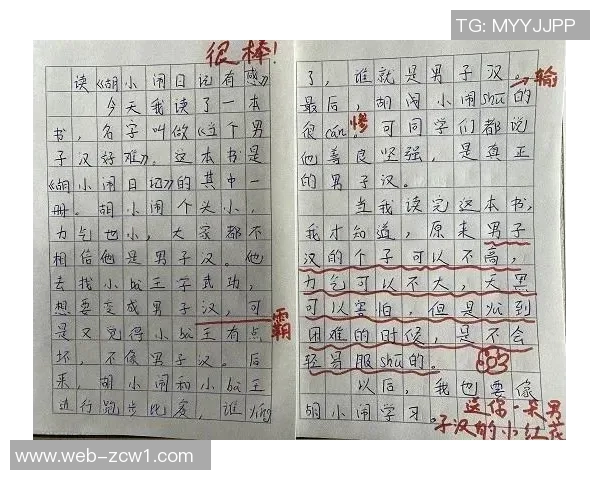 TG: MYYJJPP
很棒!
读《胡小闹日记有感》
今天我读了一本
书，名字叫做《立个男
子汉好难》。这本书是
《胡小闹日记》的其中一
册。胡小闹个头小，
力气也小，大家都不
相信他是男子汉。他
去找小bà王学武功，
想要变成男子汉，可
霸
是又觉得小bà王有点
坏，不像男子汉。后
来，胡小闹和小bà王
进行跑步比赛，谁yíng
了，谁就是男子汉。
输
最后，胡闹小闹shū的
很cǎn。可同学们都说
惨
他善良坚强，是真正
的男子汉。
当我读完这本书，
我才知道，原来男子
汉的个子可以不高，
力气可以不大，天黑
可以害怕，但是遇到
困难的时候，是不会
轻易服shū的。
以后，我也要像
胡小闹学习。
送你一朵男
子汉的小红花
www-web-zcw1.com